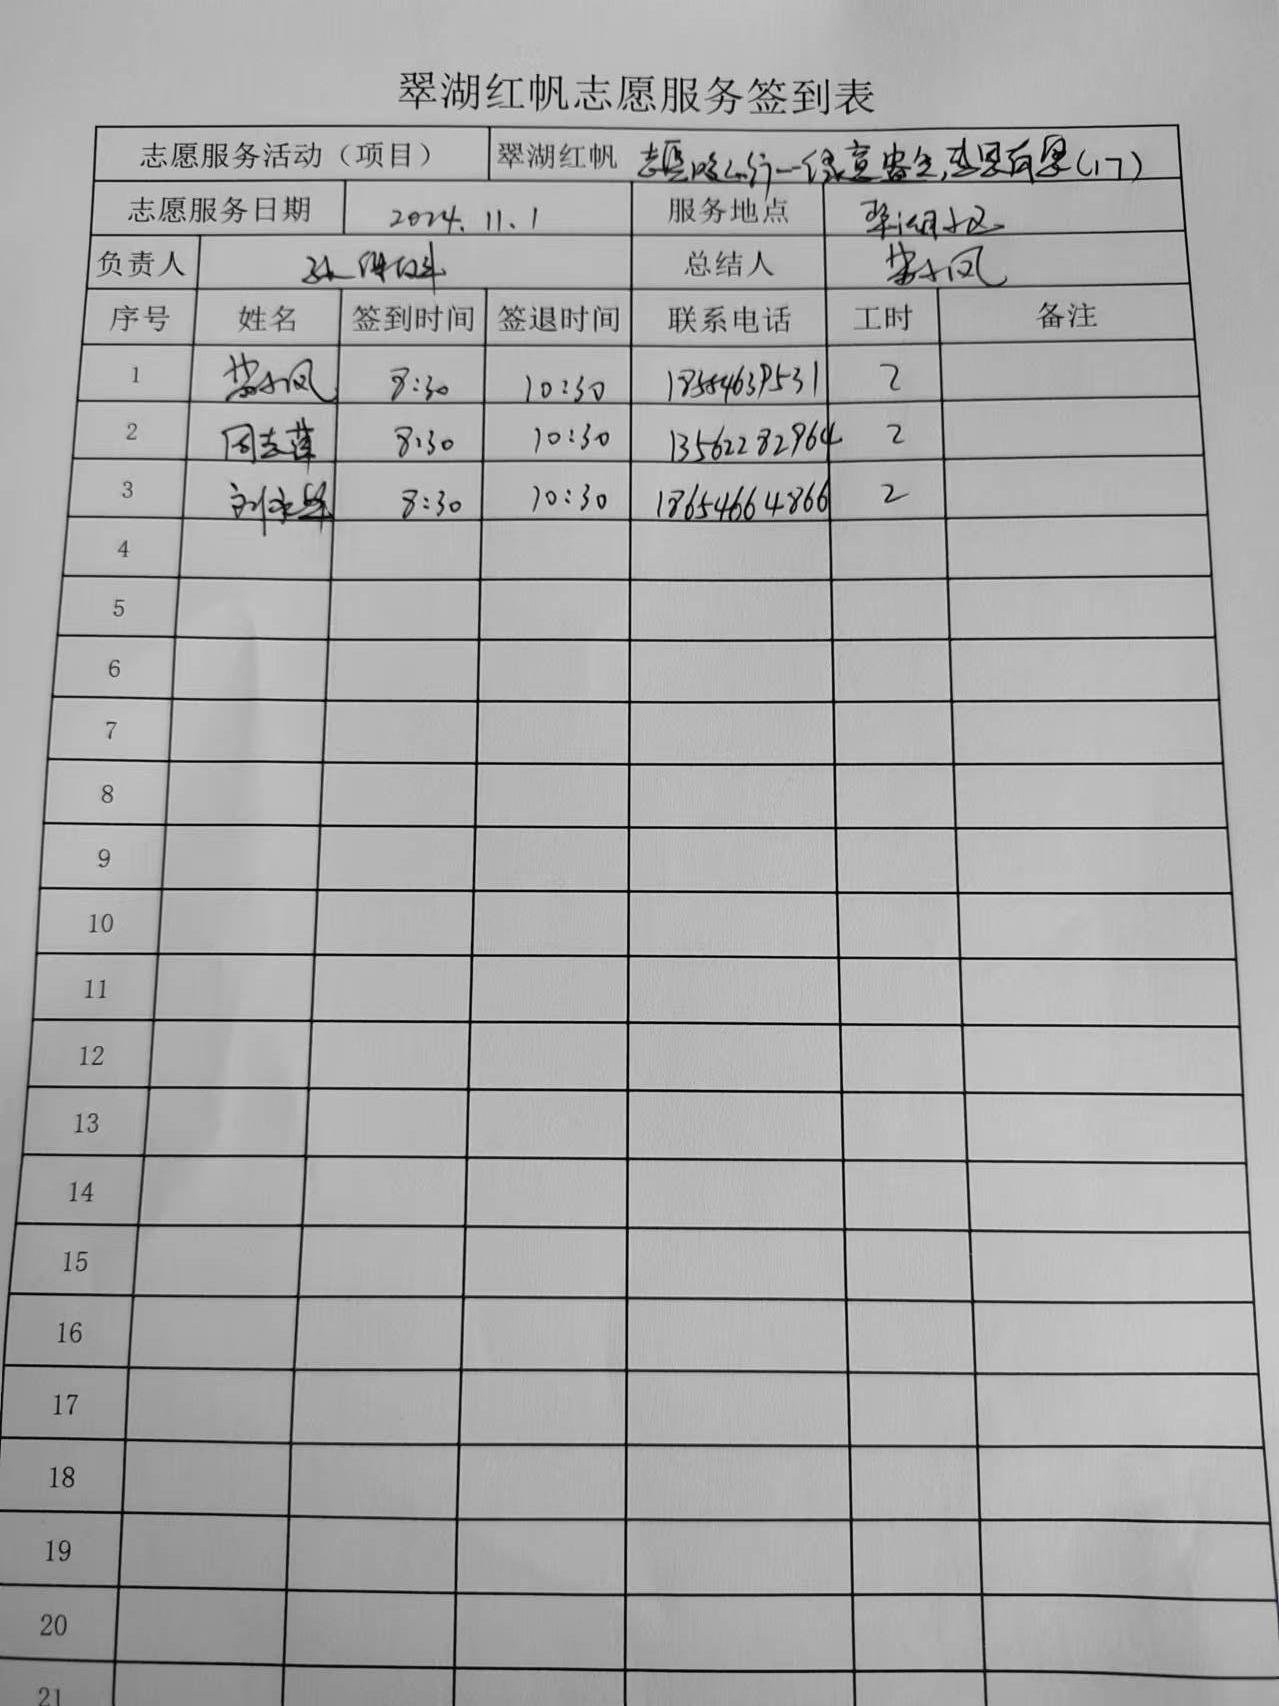 翠湖红帆志愿服务签到表
志愿服务活动（项目） 翠湖红帆 志愿 (17)
志愿服务日期 2024.11.1 服务地点 翠湖小区
负责人 总结人 小凤
序号 姓名 签到时间 签退时间 联系电话 工时 备注
1 小凤 8:30 10:30 18554639531 2
2 周志莲 8:30 10:30 13562282964 2
3 刘 8:30 10:30 18654664866 2
4
5
6
7
8
9
10
11
12
13
14
15
16
17
18
19
20
21